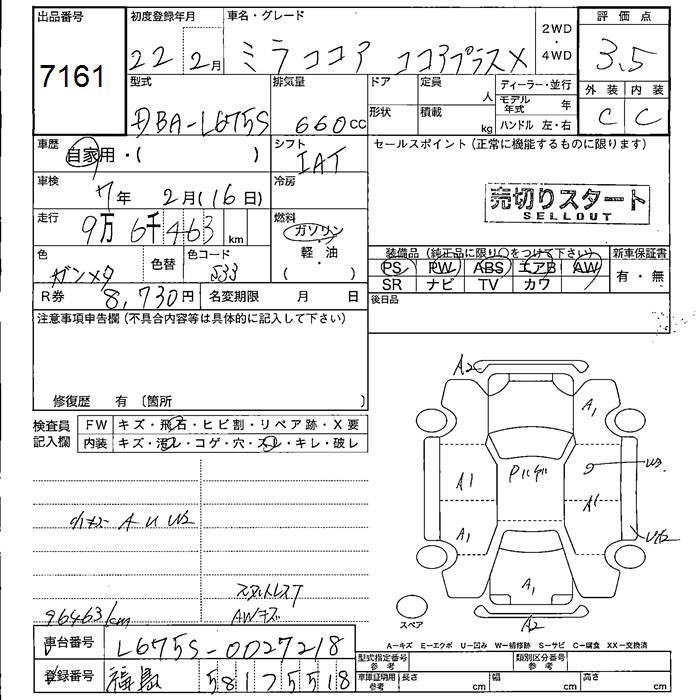 出品番号
7161
初度登録年月
22 2月
車名・グレード
ミラココア ココアプラスX
2WD
・
4WD
評価点
3.5
外装 内装
C C
型式
DBA-L675S
排気量
660cc
ドア
定員
人
ディーラー・並行
モデル年式 年
形状
積載
kg
ハンドル 左・右
車歴
自家用・( )
シフト
IAT
セールスポイント(正常に機能するものに限ります)
売切りスタート
SELLOUT
車検
7年 2月(16日)
冷房
走行
9万6千463km
燃料
ガソリン
・
軽・油
( )
色
ガンメタ
色替
色コード
S33
装備品(純正品に限り○をつけて下さい)
PS PW ABS エアB AW
SR ナビ TV カワ
新車保証書
有・無
R券
8,730円
名変期限 月 日
後日品
注意事項申告欄(不具合内容等は具体的に記入して下さい)
修復歴 有〔箇所 〕
検査員記入欄
FW キズ・飛石・ヒビ割・リペア跡・X要
内装 キズ・汚レ・コゲ・穴・スレ・キレ・破レ
A U W2
スタットレスT
AWキズ
96463/km
A2
A1
Pハゲ
W3
A1
A1
A1
A1
A2
スペア
A-キズ E-エクボ U-凹み W-補修跡 S-サビ C-腐食 XX-交換済
車台番号
L675S-0027218
登録番号
福島 581 7 5518
型式指定番号 参考
類別区分番号 参考
車庫証明用 参考
長さ cm
幅 cm
高さ cm